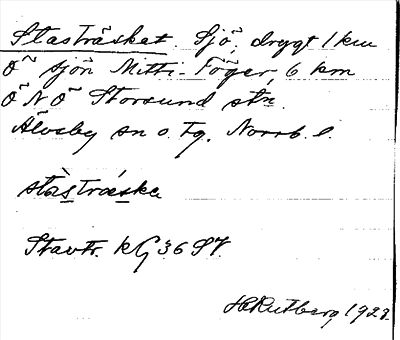 Stasträsket. Sjö, drygt 1 km
Ö sjön Mitti-Föger, 6 km
ÖNÖ Storsund stn.
Älvsby sn o. tg. Norrb. l.
stàsträ́ska
Stavtr. kG 36 SV.
H Rutberg 1928.